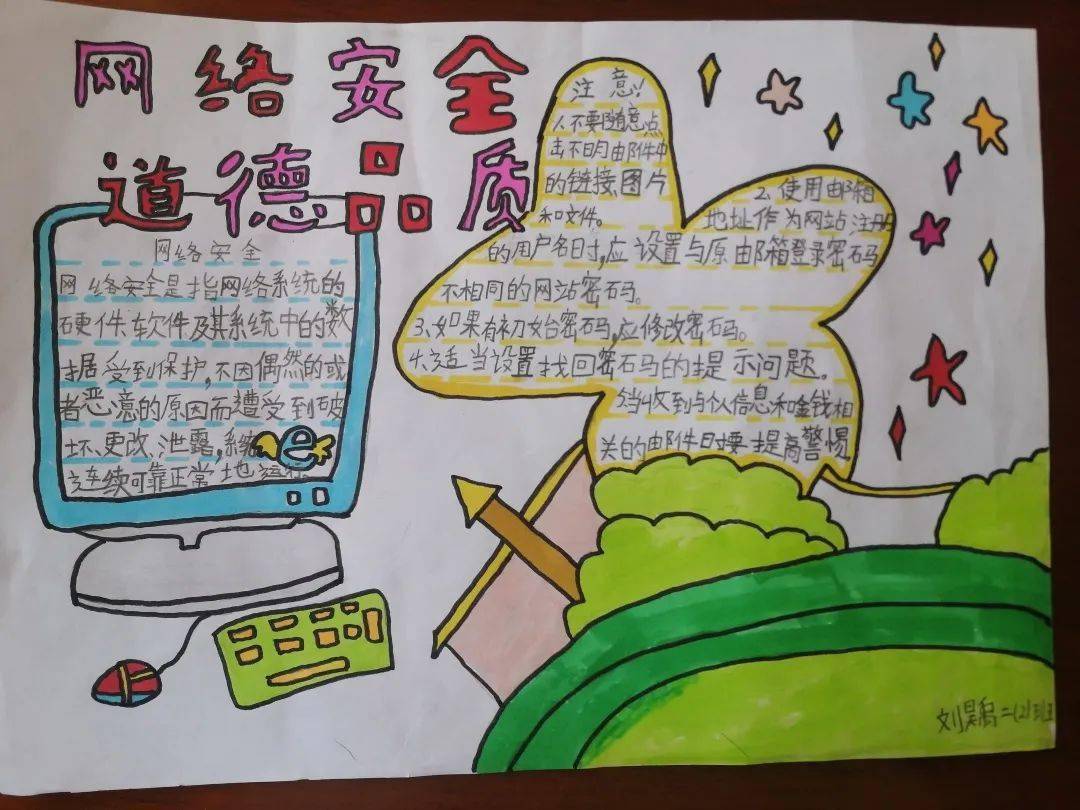 网络安全
道德品质
网络安全
网络安全是指网络系统的
硬件、软件及其系统中的数
据受到保护,不因偶然的或
者恶意的原因而遭受到破
坏、更改、泄露,系统
连续可靠正常地运行
注意!
1、不要随意点
击不明邮件中
的链接、图片
和文件。
2、使用邮箱
地址作为网站注册
的用户名时,应设置与原邮箱登录密码
不相同的网站密码。
3、如果有初始密码,应修改密码。
4、适当设置找回密码的提示问题。
5当收到与个人信息和金钱相
关的邮件时要提高警惕
e
二(2)班